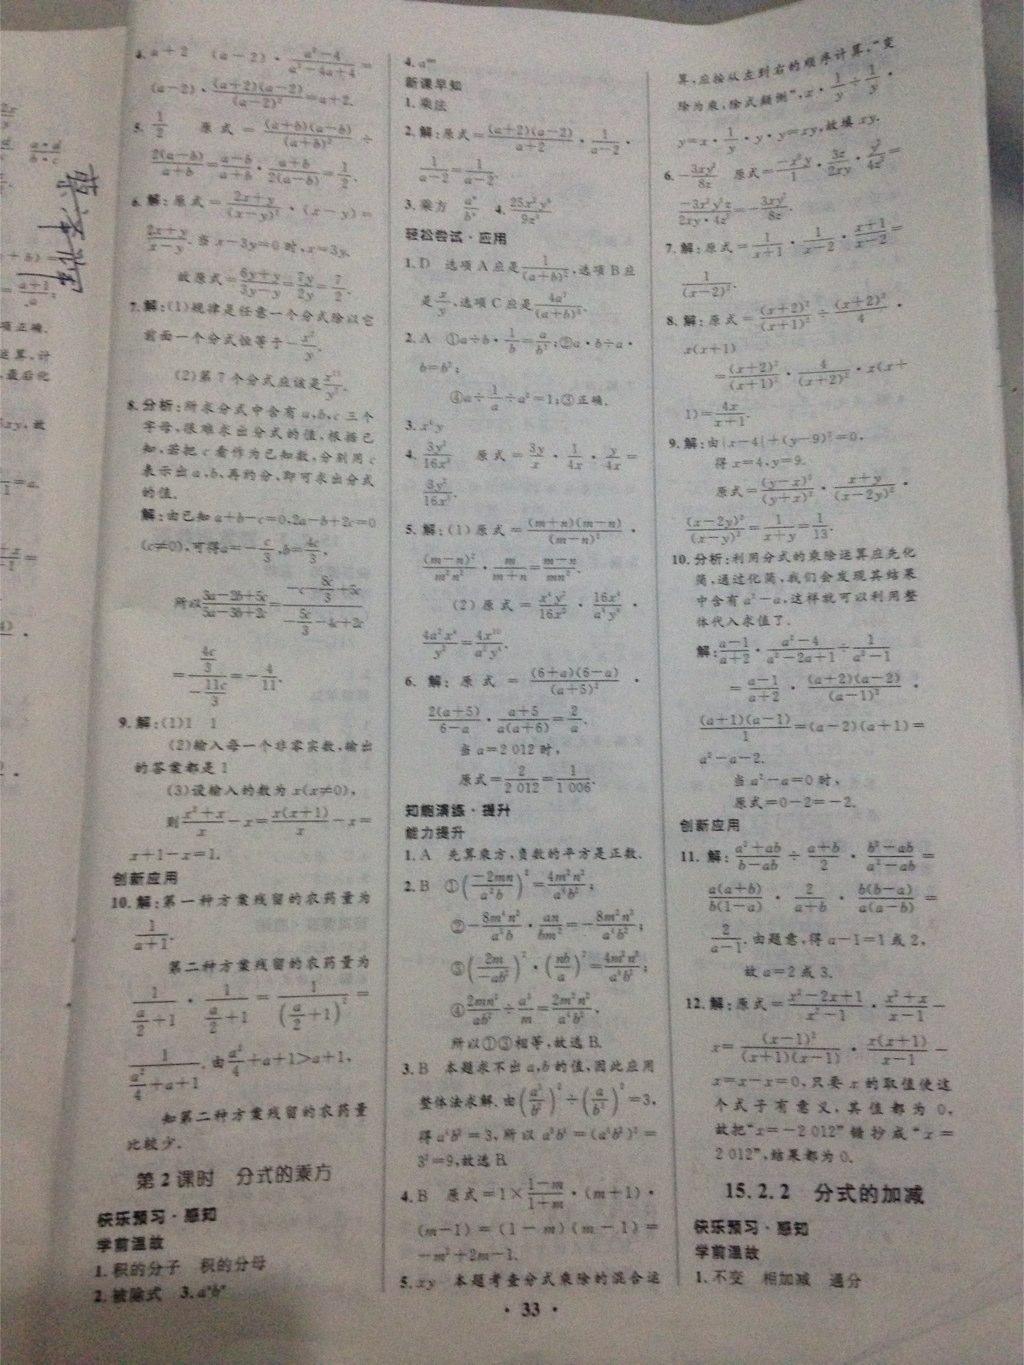 4. a+2 (a-2)·\frac{a²-4}{a²-4a+4}=
(a-2)·\frac{(a+2)(a-2)}{(a-2)²}=a+2.
5. \frac{1}{2} 原式=\frac{(a+b)(a-b)}{(a+b)²}÷
\frac{2(a-b)}{a+b}=\frac{a-b}{a+b}·\frac{a+b}{2(a-b)}=\frac{1}{2}.
6. 解:原式=\frac{2x+y}{(x-y)²}·(x-y)=
\frac{2x+y}{x-y}.当x-3y=0时,x=3y.
故原式=\frac{6y+y}{3y-y}=\frac{7y}{2y}=\frac{7}{2}.
7. 解:(1)规律是任意一个分式除以它
前面一个分式恒等于
(2)第7个分式应该是
8. 分析:所求分式中含有a,b,c三个
字母,很难求出分式的值,根据已
知,若把c看作为已知数,分别用c
表示出a,b,再约分,即可求出分式
的值.
解:由已知a+b-c=0,2a-b+2c=0
(c≠0),可得a=-\frac{c}{3},b=\frac{4c}{3},
所以\frac{3a-2b+5c}{5a-3b+2c}=
=\frac{\frac{4c}{3}}{-\frac{11c}{3}}=-\frac{4}{11}.
9. 解:(1)1 1
(2)输入每一个非零实数,输出
的答案都是1
(3)设输入的数为x(x≠0),
则\frac{x²+x}{x}-x=\frac{x(x+1)}{x}-x=
x+1-x=1.
创新应用
10. 解:第一种方案残留的农药量为
\frac{1}{a+1}.
第二种方案残留的农药量为
\frac{1}{\frac{a}{2}+1}·\frac{1}{\frac{a}{2}+1}=\frac{1}{(\frac{a}{2}+1)²}=
\frac{1}{\frac{a²}{4}+a+1}.由\frac{a²}{4}+a+1>a+1,
知第二种方案残留的农药量
比较少.
第2课时 分式的乘方
快乐预习·感知
学前温故
1. 积的分子 积的分母
2. 被除式 3. aⁿbⁿ
4. aᵐⁿ
新课早知
1. 乘法
2. 解:原式=\frac{(a+2)(a-2)}{a+2}·\frac{1}{a-2}·
\frac{1}{a-2}=\frac{1}{a-2}.
3. 乘方 \frac{aⁿ}{bⁿ} 4.
轻松尝试·应用
1. D 选项A应是\frac{1}{(a+b)²},选项B应
是\frac{x}{y},选项C应是\frac{4a²}{(a+b)²}.
2. A ①a÷b·\frac{1}{b}=\frac{a}{b²};②a·b÷a·
b=b²;
④a÷\frac{1}{a}÷a²=1;③正确.
3.
4. \frac{3y²}{16x²} 原式=\frac{3y}{x}·\frac{1}{4x}·\frac{y}{4x}=
\frac{3y²}{16x³}.
5. 解:(1)原式=\frac{(m+n)(m-n)}{(m-n)²}·
\frac{(m-n)²}{m²n²}·\frac{m}{m+n}=\frac{m-n}{mn²}.
(2)原式=
6. 解:原式=\frac{(6+a)(6-a)}{(a+5)²}·
\frac{2(a+5)}{6-a}·\frac{a+5}{a(a+6)}=\frac{2}{a}.
当a=2 012时,
原式=\frac{2}{2 012}=\frac{1}{1 006}.
知能演练·提升
能力提升
1. A 先算乘方,负数的平方是正数.
2. B ①(\frac{-2mn}{a²b})²=\frac{4m²n²}{a⁴b²};
②-\frac{8m⁴n²}{a⁵b}·\frac{an}{bm²}=-\frac{8m²n³}{a⁴b²};
③(\frac{2m}{-ab²})²·(\frac{nb}{a})²=\frac{4m²n²}{a⁴b²};
④\frac{2mn²}{ab²}÷\frac{a³}{m}=\frac{2m²n²}{a⁴b²},
所以①③相等,故选B.
3. B 本题求不出a,b的值,因此应用
整体法求解.由(\frac{a³}{b²})²÷(\frac{a}{b³})²=3,
得a⁴b²=3,所以a⁸b⁴=(a⁴b²)²=
3²=9,故选B.
4. B 原式=1×\frac{1-m}{1+m}·(m+1)·
(m-1)=(1-m)(m-1)=
-m²+2m-1.
5. xy 本题考查分式乘除的混合运
算,应按从左到右的顺序计算,“变
除为乘,除式颠倒”,x·\frac{1}{y}÷\frac{1}{y}·
y=x·\frac{1}{y}·y·y=xy,故填xy.
6. -\frac{3xy²}{8z} 原式=\frac{-x²y}{1}·\frac{3z}{2xy}·\frac{y²}{4z²}=
\frac{-3x²y³z}{2xy·4z²}=-\frac{3xy²}{8z}.
7. 解:原式=\frac{1}{x+1}·\frac{1}{x-2}·\frac{x+1}{x-2}=
\frac{1}{(x-2)²}.
8. 解:原式=\frac{(x+2)²}{(x+1)²}÷\frac{(x+2)²}{4}·
x(x+1)
=\frac{(x+2)²}{(x+1)²}·\frac{4}{(x+2)²}·x(x+
1)=\frac{4x}{x+1}.
9. 解:由|x-4|+(y-9)²=0,
得x=4,y=9.
原式=\frac{(y-x)²}{(y+x)²}·\frac{x+y}{(x-2y)²}·
\frac{(x-2y)²}{(x-y)²}=\frac{1}{x+y}=\frac{1}{13}.
10. 分析:利用分式的乘除运算应先化
简,通过化简,我们会发现其结果
中含有a²-a,这样就可以利用整
体代入求值了.
解:\frac{a-1}{a+2}·\frac{a²-4}{a²-2a+1}÷\frac{1}{a²-1}
=\frac{a-1}{a+2}·\frac{(a+2)(a-2)}{(a-1)²}·
\frac{(a+1)(a-1)}{1}=(a-2)(a+1)=
a²-a-2.
当a²-a=0时,
原式=0-2=-2.
创新应用
11. 解:\frac{a²+ab}{b-ab}÷\frac{a+b}{2}·\frac{b²-ab}{a²-ab}=
\frac{a(a+b)}{b(1-a)}·\frac{2}{a+b}·\frac{b(b-a)}{a(a-b)}=
\frac{2}{a-1}.由题意,得a-1=1或2,
故a=2或3.
12. 解:原式=\frac{x²-2x+1}{x²-1}·\frac{x²+x}{x-1}-
x=\frac{(x-1)²}{(x+1)(x-1)}·\frac{x(x+1)}{x-1}-
x=x-x=0,只要x的取值使这
个式子有意义,其值都为0,
故把“x=-2 012”错抄成“x=
2 012”,结果都为0.
15.2.2 分式的加减
快乐预习·感知
学前温故
1. 不变 相加减 通分
· 33 ·